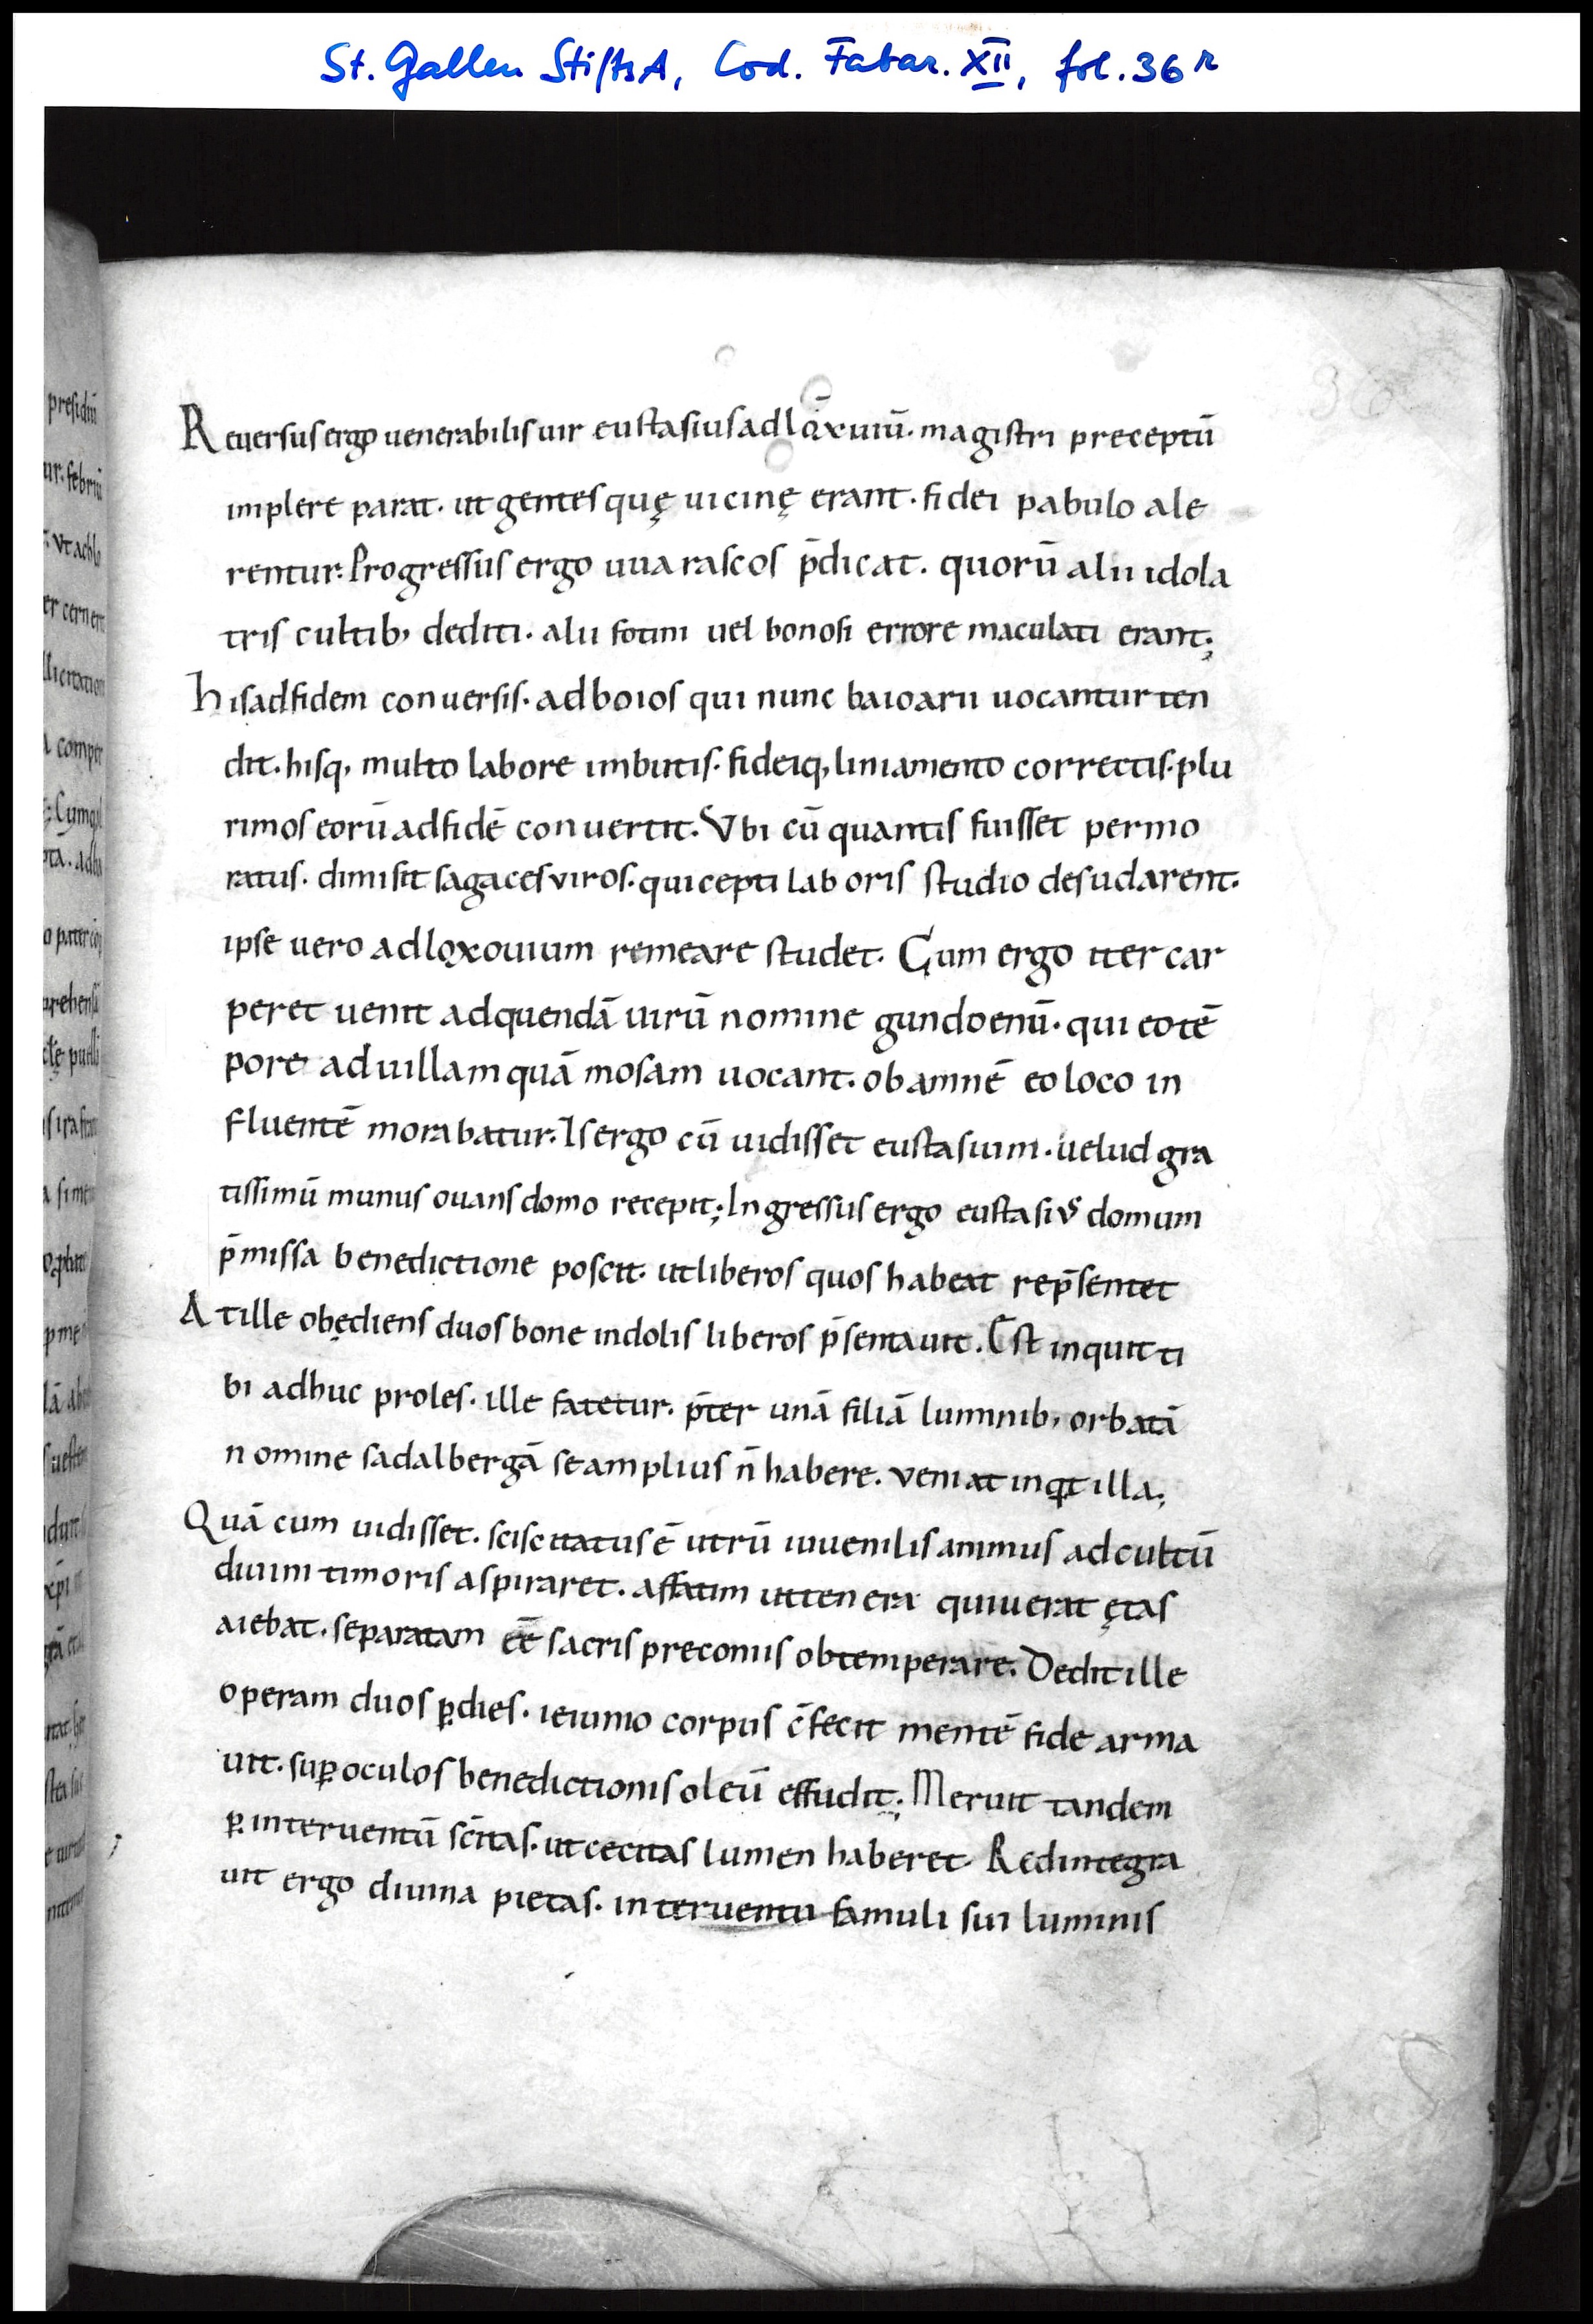 St. Gallen StiftsA, Cod. Fabar. XII, fol. 36r
36
Reuersus ergo uenerabilis uir eustasius ad loxuiū. magistri preceptū
implere parat. ut gentes quę uicinę erant. fidei pabulo ale
rentur. Progressus ergo uuarascos p̄dicat. quorū alii idola
tris cultib; dediti. alii fotini uel bonosi errore maculati erant;
his ad fidem conuersis. ad boios qui nunc baioarii uocantur ten
dit. hisq; multo labore imbutis. fideiq; liniamento correctis. plu
rimos eorū ad fidē conuertit. Vbi cū quantis fuisset permo
ratus. dimisit sagaces viros. qui cepti laboris studio desudarent.
ipse uero ad loxouium remeare studet. Cum ergo iter car
peret uenit ad quendā uirū nomine gundoenū. qui eo tē
pore ad uillam quā mosam uocant. ob amnē eo loco in
fluentē morabatur. Is ergo cū uidisset eustasium. uelud gra
tissimū munus ouans domo recepit; Ingressus ergo eustasiꝰ domum
p̄missa benedictione poscit. ut liberos quos habeat rep̄sentet
At ille obędiens duos bone indolis liberos p̄sentauit. Est inquit ti
bi adhuc proles. ille fatetur. p̄ter unā filiā luminib; orbatā
nomine sadalbergā se amplius n̄ habere. veniat inqt illa;
Quā cum uidisset. sciscitatus ē utrū iuuenilis animus ad cultū
diuini timoris aspiraret. affatim ut tenera quiuerat ętas
aiebat. separatam eē sacris preconiis obtemperare. Dedit ille
operam duos ꝑ dies. ieiunio corpus c̄fecit mentē fide arma
uit. suꝑ oculos benedictionis oleū effudit; Meruit tandem
ꝑ interuentū sc̄itas. ut cecitas lumen haberet. Redintegra
uit ergo diuina pietas. interuentu famuli sui luminis